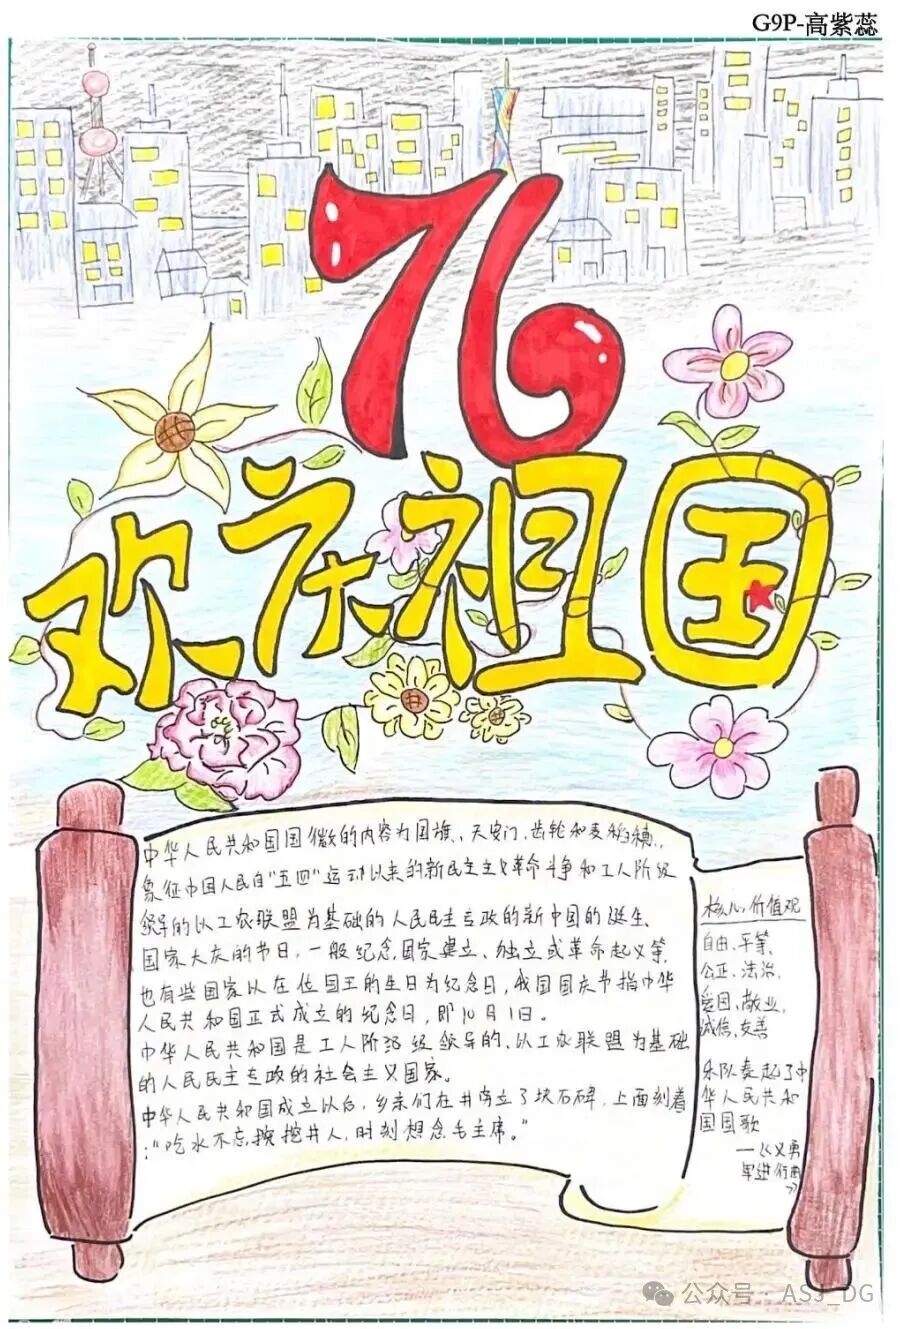 G9P-高紫蕊
76
欢庆祖国
中华人民共和国国徽的内容为国旗、天安门、齿轮和麦稻穗,
象征中国人民自"五四"运动以来的新民主主义革命斗争和工人阶级
领导的以工农联盟为基础的人民民主专政的新中国的诞生.
国家大庆的节日,一般纪念国家建立、独立或革命起义等,
也有些国家以在位国王的生日为纪念日,我国国庆节指中华
人民共和国正式成立的纪念日,即10月1日。
中华人民共和国是工人阶级领导的、以工农联盟为基础
的人民民主专政的社会主义国家。
中华人民共和国成立以后,乡亲们在井旁立了块石碑,上面刻着
:"吃水不忘挖井人,时刻想念毛主席。"
核心价值观
自由、平等、
公正、法治,
爱国、敬业,
诚信、友善
乐队奏起了中
华人民共和
国国歌
—《义勇
军进行曲
》
公众号 · ASJ_DG